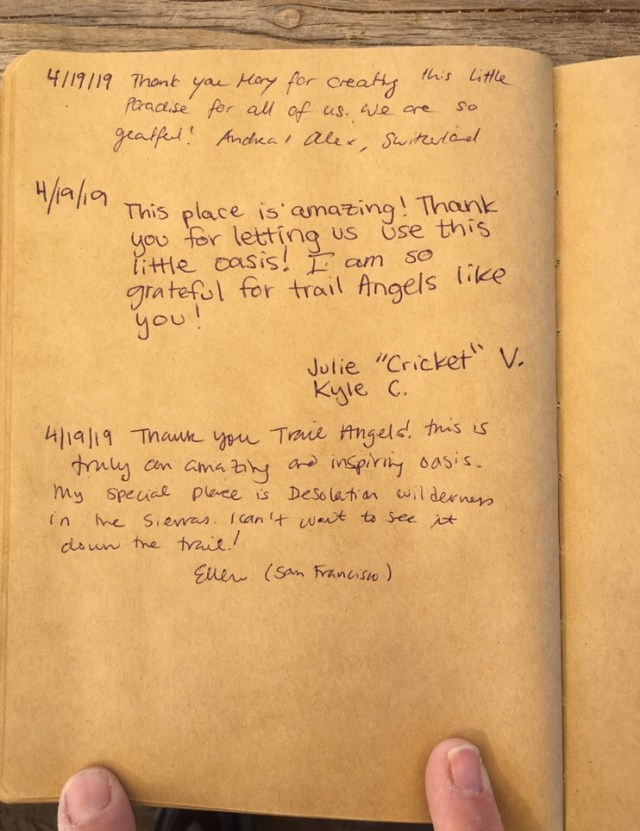 4/19/19 Thank you Mary for creating this little
Paradise for all of us. We are so
greatful! Andrea, Alex, Switzerland
4/19/19
This place is amazing! Thank
you for letting us use this
little oasis! I am so
grateful for trail Angels like
you!
Julie "Cricket" V.
Kyle C.
4/19/19 Thank you Trail Angels! this is
truly an amazing and inspiring oasis.
My special place is Desolation wilderness
in the Sierras. I can't wait to see it
down the trail!
Ellen (San Francisco)